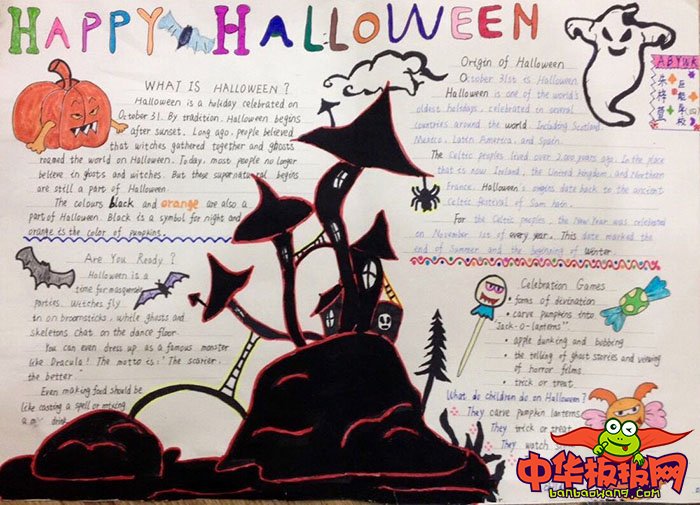 HAPPY HALLOWEEN
WHAT IS HALLOWEEN?
Halloween is a holiday celebrated on
October 31. By tradition, Halloween begins
after sunset. Long ago, people believed
that witches gathered together and ghosts
roamed the world on Halloween. Today, most people no longer
believe in ghosts and witches. But these supernatural begins
are still a part of Halloween.
The colours black and orange are also a
part of Halloween. Black is a symbol for night and
orange is the color of pumpkins.
Are You Ready?
Halloween is a
time for masquerade
parties. Witches fly
in on broomsticks, while ghosts and
skeletons chat on the dance floor.
You can even dress up as a famous monster
like Dracula! The motto is: "The scarier,
the better."
Even making food should be
like casting a spell or mixing
a drink
Origin of Halloween
October 31st is Halloween.
Halloween is one of the world's
oldest holidays, celebrated in several
countries around the world, including Scotland,
Mexico, Latin America, and Spain.
The Celtic peoples lived over 2,000 years ago. In the place
that is now Ireland, the United Kingdom, and Northern
France. Halloween's origins date back to the ancient
Celtic festival of Sam hain.
For the Celtic peoples, the New Year was celebrated
on November 1st of every year. This date marked the
end of Summer and the beginning of winter.
Celebration Games
• forms of divination
• carve pumpkins into
"Jack-o-lanterns"
• apple dunking and bobbing
• the telling of ghost stories and viewing
of horror films
• trick or treat
What do children do on Halloween?
They carve pumpkin lanterns
They trick or treat
They watch
中华板报网
banbaowang.com